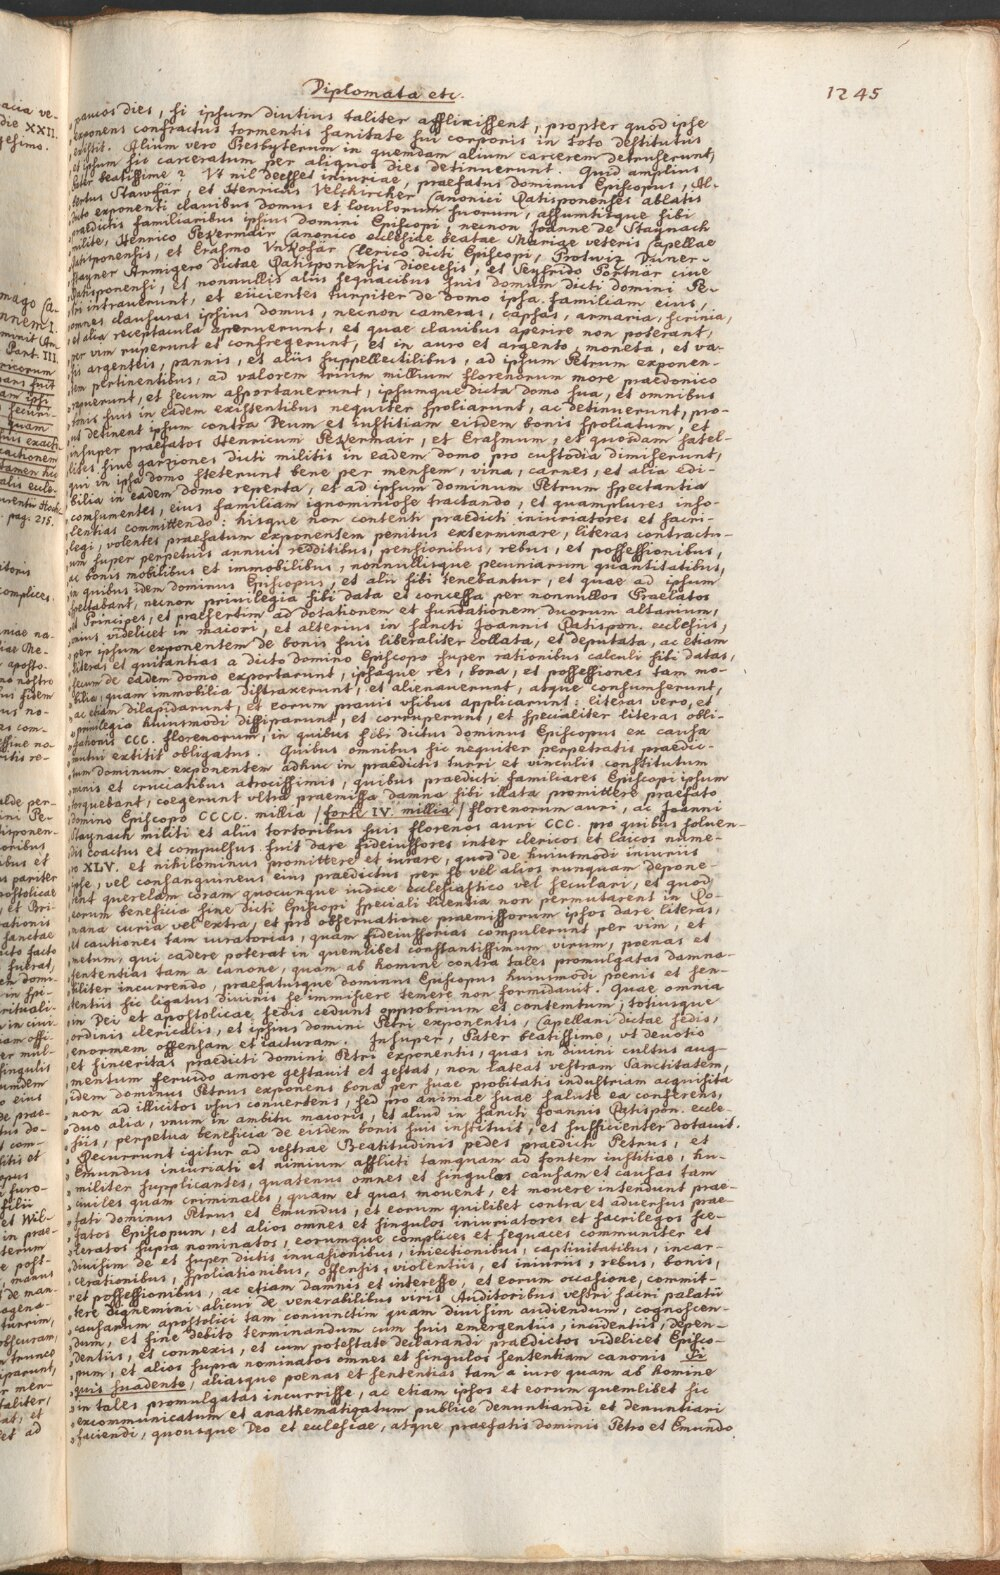 Diplomata etc.
1245
paucos dies, si ipsum diutius taliter afflixissent, propter quod ipse
exponens confractus tormentis sanitate sui corporis in toto destitutus
extitit. Alium vero Presbyterum in quemdam alium carcerem detruserunt,
et ipsum sic carceratum per aliquos dies detinuerunt. Quid amplius
Pater beatissime? Vt nil deesset iniuriae, praefatus dominus Episcopus, Al-
bertus Stawfär, et Henricus Velschircher Canonici Ratisponenses ablatis
dicto exponenti clavibus domus et loculorum suorum, assumtisque sibi
praedictis familiaribus ipsius domini Episcopi, necnon Joanne de Staynach
milite, Henrico Pexermair Canonico ecclesiae beatae Mariae veteris Capellae
Ratisponensis, et Erasmo Vnkofär Clerico dicti Episcopi, Protwiz Viner-
stayner Armigero dictae Ratisponensis dioecesis, et Seyfrido Portnär cive
Ratisponensi, et nonnullis aliis sequacibus suis domum dicti domini Pe-
tri intraverunt, et eiicientes turpiter de domo ipsa familiam eius,
omnes clausuras ipsius domus, necnon cameras, capsas, armaria, scrinia,
et alia receptacula aperuerunt, et quae clavibus aperire non poterant,
per vim ruperunt et confregerunt, et in auro et argento, moneta, et va-
sis argenteis, pannis, et aliis suppellectilibus, ad ipsum Petrum exponen-
tem pertinentibus, ad valorem trium millium florenorum more praedonico
rapuerunt, et secum asportaverunt, ipsumque dicta domo sua, et omnibus
bonis suis in eadem existentibus nequiter spoliarunt, ac detinuerunt, pro-
ut detinent ipsum contra Deum et iustitiam eisdem bonis spoliatum, et
insuper praefatos Henricum Pexermair, et Erasmum, et quosdam satel-
lites sive garziones dicti militis in eadem domo pro custodia dimiserunt,
qui in ipsa domo steterunt bene per mensem, vina, carnes, et alia edi-
bilia in eadem domo reperta, et ad ipsum dominum Petrum spectantia
consumentes, eius familiam ignominiose tractando, et quamplures inso-
lentias committendo: hisque non contenti praedicti iniuriatores et sacri-
legi, volentes praefatum exponentem penitus exterminare, literas contractu-
um super perpetuis annuis redditibus, pensionibus, rebus, et possessionibus,
ac bonis mobilibus et immobilibus, nonnullisque pecuniarum quantitatibus,
in quibus idem dominus Episcopus, et alii sibi tenebantur, et quae ad ipsum
spectabant, necnon privilegia sibi data et concessa per nonnullos Praelatos
et Principes, et praesertim ad dotationem et fundationem duorum altarium,
unius videlicet in maiori, et alterius in sancti Joannis Ratispon. ecclesiis,
per ipsum exponentem de bonis suis liberaliter collata, et deputata, ac etiam
literas et quitantias a dicto domino Episcopo super rationibus calculi sibi datas,
secum de eadem domo exportarunt, ipsaque res, bona, et possessiones tam mo-
bilia, quam immobilia distraxerunt, et alienaverunt, atque consumserunt,
ac etiam dilapidarunt, et eorum pravis vsibus applicarunt: literas vero, et
privilegia huiusmodi dissiparunt, et corruperunt, et specialiter literas obli-
gationis CCC. florenorum, in quibus sibi dictus dominus Episcopus ex causa
mutui extitit obligatus. Quibus omnibus sic nequiter perpetratis praedic-
tum dominum exponentem adhuc in praedictis turri et vinculis constitutum
minis et cruciatibus atrocissimis, quibus praedicti familiares Episcopi ipsum
torquebant, coegerunt vltra praemissa damna sibi illata promittere praefato
domino Episcopo CCCC. millia /forte IV. millia/ florenorum auri, ac Joanni
Staynach militi et aliis tortoribus suis florenos auri CCC. pro quibus solven-
dis coactus et compulsus fuit dare fideiussores inter clericos et laicos nume-
ro XLV. et nihilominus promittere et iurare, quod de huiusmodi iniuriis
ipse, vel consanguineus eius praedictus per se vel alios nunquam depone-
rent querelam coram quocunque iudice ecclesiastico vel seculari, et quod
eorum beneficia sine dicti Episcopi speciali licentia non permutarent in Ro-
mana curia vel extra, et pro observatione praemissorum ipsos dare literas,
et cautiones tam iuratorias, quam fideiussorias compulerunt per vim, et
metum, qui cadere poterat in quemlibet constantissimum virum, poenas et
sententias tam a canone, quam ab homine contra tales promulgatas damna-
biliter incurrendo, praefatusque dominus Episcopus huiusmodi poenis et sen-
tentiis sic ligatus divinis se immiscere temere non formidavit. Quae omnia
in Dei et apostolicae sedis cedunt opprobrium et contemtum, totiusque
ordinis clericalis, et ipsius domini Petri exponentis, Capellani dictae sedis,
enormem offensam et iacturam. Insuper, Pater beatissime, vt devotio
et sinceritas praedicti domini Petri exponentis, quas in divini cultus aug-
mentum fervido amore gestavit et gestat, non lateat vestram Sanctitatem,
idem dominus Petrus exponens bona per suae probitatis industriam acquisita
non ad illicitos vsus convertens, sed pro animae suae salute ea conferens,
duo alia, vnum in ambitu maioris, et aliud in sancti Joannis Ratispon. eccle-
siis, perpetua beneficia de eisdem bonis suis instituit, et sufficienter dotavit.
Recurrunt igitur ad vestrae Beatitudinis pedes praedicti Petrus, et
Emundus iniuriati et nimium afflicti tamquam ad fontem iustitiae, hu-
militer supplicantes, quatenus omnes et singulas causam et causas tam
civiles quam criminales, quam et quas movent, et movere intendunt prae-
fati dominus Petrus et Emundus, et eorum quilibet contra et adversus prae-
fatos Episcopum, et alios omnes et singulos iniuriatores et sacrilegos sce-
leratos supra nominatos, eorumque complices et sequaces communiter et
divisim de et super dictis invasionibus, iniectionibus, captivitatibus, incar-
cerationibus, spoliationibus, offensis, violentiis, et iniuriis, rebus, bonis,
et possessionibus, ac etiam damnis et interesse, et eorum occasione, commit-
tere dignemini alicui de venerabilibus viris Auditoribus vestri sacri palatii
causarum apostolici tam coniunctim quam divisim audiendum, cognoscen-
dum, et fine debito terminandum cum suis emergentiis, incidentiis, depen-
dentiis, et connexis, et cum potestate declarandi praedictos videlicet Episco-
pum, et alios supra nominatos omnes et singulos sententiam canonis Si
quis suadente, aliasque poenas et sententias tam a iure quam ab homine
in tales promulgatas incurrisse, ac etiam ipsos et eorum quemlibet sic
excommunicatum et anathematizatum publice denuntiandi et denuntiari
faciendi, quousque Deo et ecclesiae, atque praefatis dominis Petro et Emundo